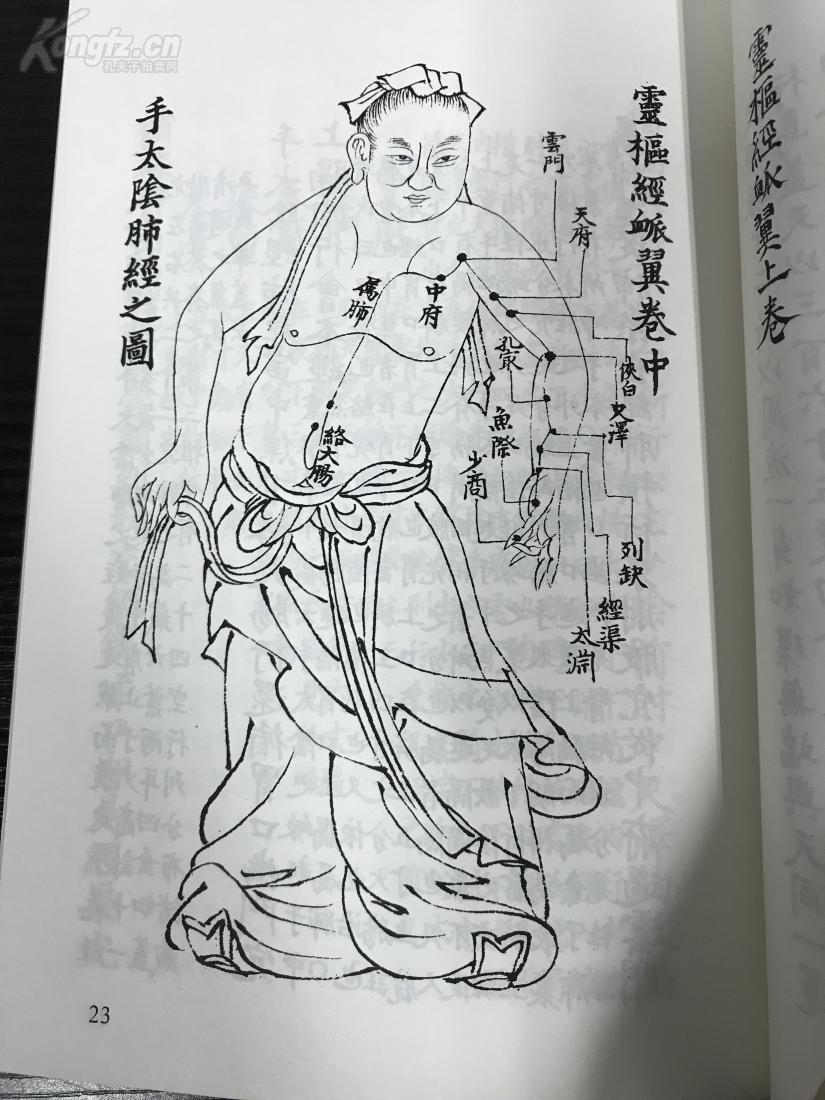 Kongfz.cn
孔夫子拍卖网
靈樞經脈翼上卷
靈樞經脈翼卷中
雲門
天府
俠白
尺澤
列缺
經渠
太淵
中府
屬肺
孔最
魚際
少商
絡大腸
手太陰肺經之圖
23